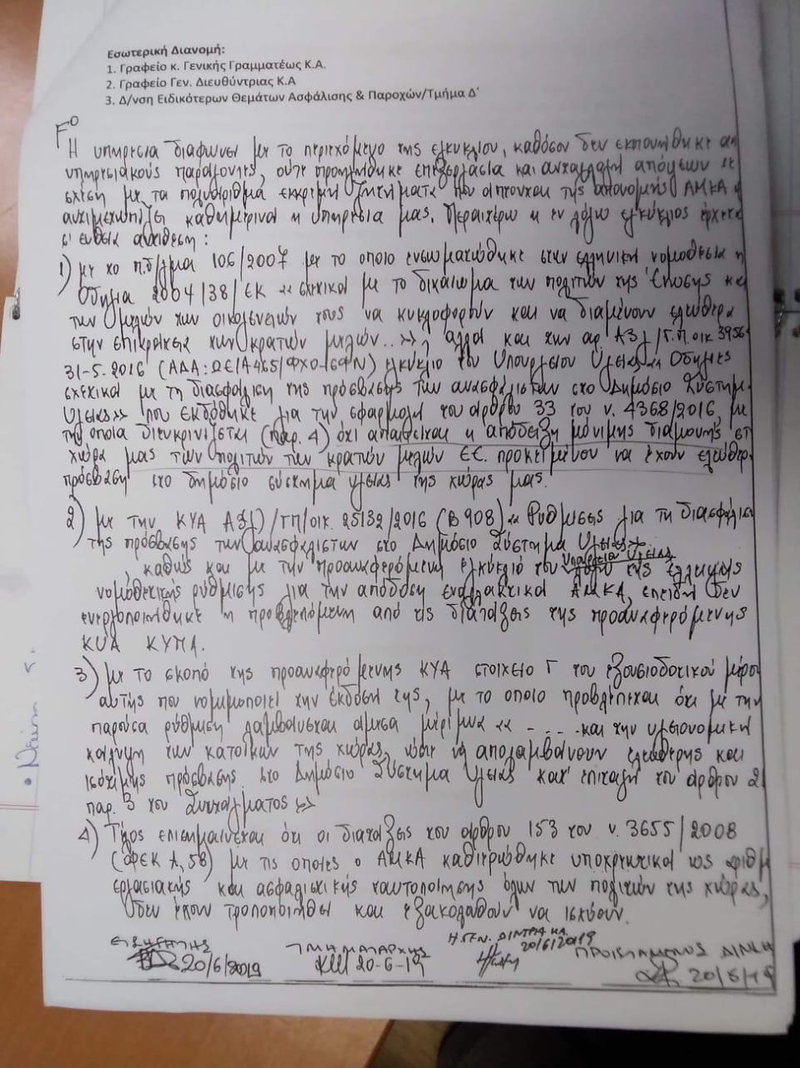 Εσωτερική Διανομή:
1. Γραφείο κ. Γενικής Γραμματέως Κ.Α.
2. Γραφείο Γεν. Διευθύντριας Κ.Α
3. Δ/νση Ειδικότερων Θεμάτων Ασφάλισης & Παροχών/Τμήμα Δ΄
Η υπηρεσία διαφωνεί με το περιεχόμενο της εγκυκλίου, καθόσον δεν εκπονήθηκε
υπηρεσιακούς παράγοντες, ούτε προηγήθηκε επεξεργασία και ανταλλαγή απόψεων
σχέση με τα πολυάριθμα εκκρεμή ζητήματα που άπτονται της απονομής ΑΜΚΑ
αντιμετωπίζει καθημερινά η υπηρεσία μας. Περαιτέρω η εν λόγω εγκύκλιος έρχεται
σ' ευθεία αντίθεση:
1) με το π.δ/γμα 106/2007 με το οποίο ενσωματώθηκε στην ελληνική νομοθεσία η
Οδηγία 2004/38/ΕΚ «σχετικά με το δικαίωμα των πολιτών της Ένωσης και
των μελών των οικογενειών τους να κυκλοφορούν και να διαμένουν ελεύθερα
στην επικράτεια των κρατών μελών...», αλλά και την αρ. Α3γ/Γ.Π.οικ 3956
31-5-2016 εγκύκλιο του Υπουργείου Υγείας «Οδηγίες
σχετικά με τη διασφάλιση της πρόσβασης των ανασφάλιστων στο Δημόσιο Σύστημα
Υγείας» που εκδόθηκε για την εφαρμογή του άρθρου 33 του ν. 4368/2016, με
την οποία διευκρινίζεται (παρ. 4) ότι απαιτείται η απόδειξη μόνιμης διαμονής στη
χώρα μας των πολιτών των κρατών μελών ΕΕ. προκειμένου να έχουν ελεύθερη
πρόσβαση στο δημόσιο σύστημα υγείας της χώρας μας.
2) με την ΚΥΑ Α3(γ)/ΓΠ/οικ. 25132/2016 (Β 908) «Ρυθμίσεις για τη διασφάλιση
της πρόσβασης των ανασφάλιστων στο Δημόσιο Σύστημα Υγείας»
καθώς και με την προαναφερόμενη εγκύκλιο του Υπουργείου Υγείας λόγω της έλλειψης
νομοθετικής ρύθμισης για την απόδοση εναλλακτικά ΑΜΚΑ, επειδή δεν
ενεργοποιήθηκε η προβλεπόμενη από τις διατάξεις της προαναφερόμενης
ΚΥΑ ΚΥΠΑ.
3) με το σκοπό της προαναφερόμενης ΚΥΑ στοιχείο Γ του εξουσιοδοτικού μέρους
αυτής που νομιμοποιεί την έκδοσή της, με το οποίο προβλέπεται ότι με την
παρούσα ρύθμιση λαμβάνεται άμεσα μέριμνα «.... και την υγειονομική
κάλυψη των κατοίκων της χώρας, ώστε να απολαμβάνουν ελεύθερης και
ισότιμης πρόσβασης στο Δημόσιο Σύστημα Υγείας κατ' επιταγή του άρθρου 21
παρ. 3 του Συντάγματος»
4) Τέλος επισημαίνεται ότι οι διατάξεις του άρθρου 153 του ν. 3655/2008
(ΦΕΚ Α, 58) με τις οποίες ο ΑΜΚΑ καθιερώθηκε υποχρεωτικά ως αριθμ
εργασιακής και ασφαλιστικής ταυτοποίησης όλων των πολιτών της χώρας,
δεν έχουν τροποποιηθεί και εξακολουθούν να ισχύουν.
ΕΙΣΗΓΗΤΗΣ ΤΜΗΜΑΤΑΡΧΗΣ Η ΓΕΝ. Δ/ΝΤΡΙΑ ΚΑ. ΠΡΟΙΣΤΑΜΕΝΟΣ Δ/ΝΣΗ
20/6/2019 20-6-19 20/6/2019 20/6/19